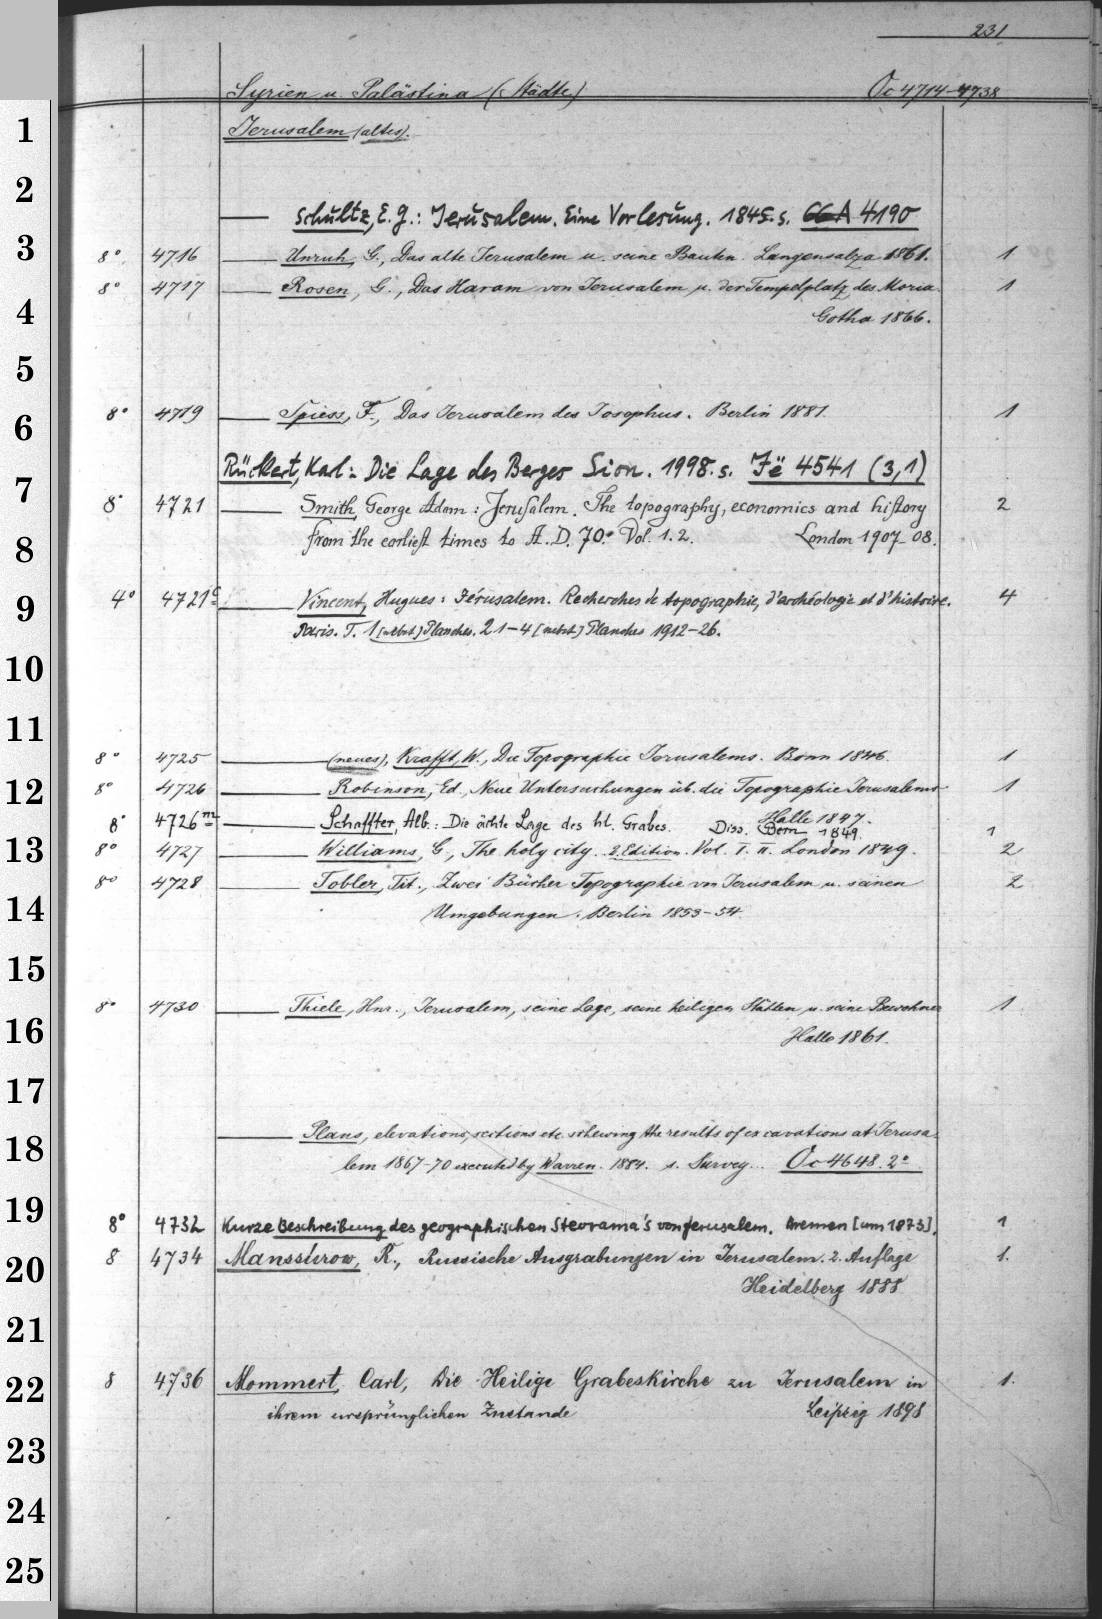 231
Syrien u. Palästina (Städte) Oc 4714-4738
Jerusalem (altes).
1
2
Schultz, E. G.: Jerusalem. Eine Vorlesung. 1845. s. 66 A 4190
3
8° 4716 Unruh, G., Das alte Jerusalem u. seine Bauten. Langensalza 1861. 1
8° 4717 Rosen, G., Das Haram von Jerusalem u. der Tempelplatz des Moria. 1
4
Gotha 1866.
5
8° 4719 Spiess, F., Das Jerusalem des Josephus. Berlin 1881. 1
6
Rückert, Karl: Die Lage des Berges Sion. 1998. s. Fë 4541 (3,1)
7
8° 4721 Smith, George Adam: Jerusalem. The topography, economics and history 2
8
from the earliest times to A.D. 70. Vol. 1.2. London 1907-08.
9
4° 4721c Vincent, Hugues: Jérusalem. Recherches de topographie, d'archéologie et d'histoire. 4
Paris. T. 1 [nebst] Planches. 2 1-4 [nebst] Planches 1912-26.
10
11
8° 4725 (neues), Krafft, W., Die Topographie Jerusalems. Bonn 1846. 1
12
8° 4726 Robinson, Ed., Neue Untersuchungen üb. die Topographie Jerusalems 1
Halle 1847.
8° 4726m Schaffter, Alb.: Die ächte Lage des hl. Grabes. Diss. Bern 1849. 1
13
8° 4727 Williams, G., The holy city. 2. Edition. Vol. I. II. London 1849. 2
8° 4728 Tobler, Tit., Zwei Bücher Topographie von Jerusalem u. seinen 2
14
Umgebungen. Berlin 1853-54
15
8° 4730 Thiele, Hnr., Jerusalem, seine Lage, seine heiligen Stätten u. seine Bewohner 1
16
Halle 1861.
17
18
Plans, elevations, sections etc. schewing the results of excavations at Jerusa-
lem 1867-70 executed by Warren. 1884. s. Survey... Oc 4648. 2°
19
8° 4732 Kurze Beschreibung des geographischen Steorama's von Jerusalem. Bremen [um 1873]. 1
20
8 4734 Manssurow, R., Russische Ausgrabungen in Jerusalem. 2. Auflage 1.
Heidelberg 1888
21
22
8 4736 Mommert, Carl, Die Heilige Grabeskirche zu Jerusalem in 1.
ihrem ursprünglichen Zustande Leipzig 1898
23
24
25